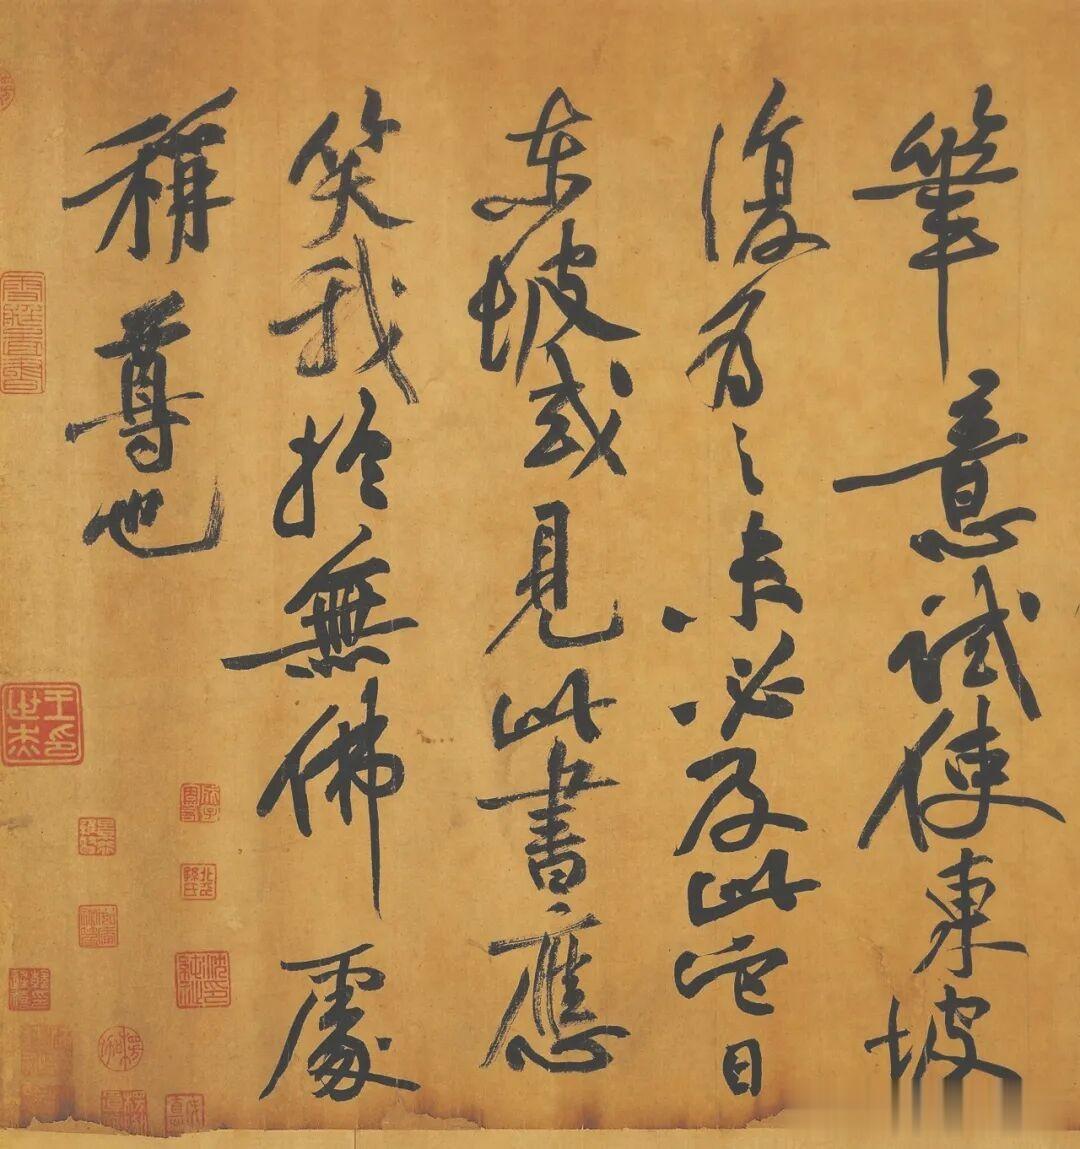 筆意試使東坡
復為之未必及此它日
東坡或見此書應
笑我於無佛處
稱尊也
王氏世杰